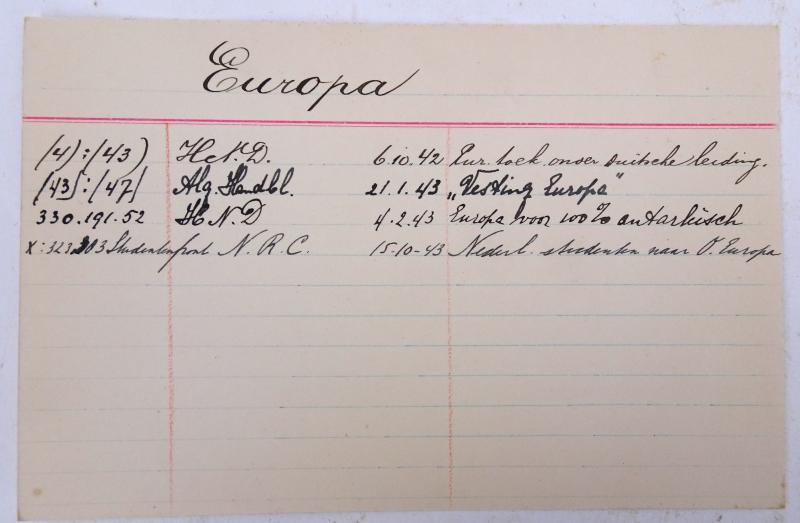 Europa
(4):(43) H.N.D. 6.10.42 Eur. toek. onder Duitsche leiding.
(43):(47) Alg. Handbl. 21.1.43 „Vesting Europa"
330.191.52 H.N.D 4.2.43 Europa voor 100% autarkisch
X:323 Studentenfront N.R.C. 15-10-43 Nederl. studenten naar O. Europa